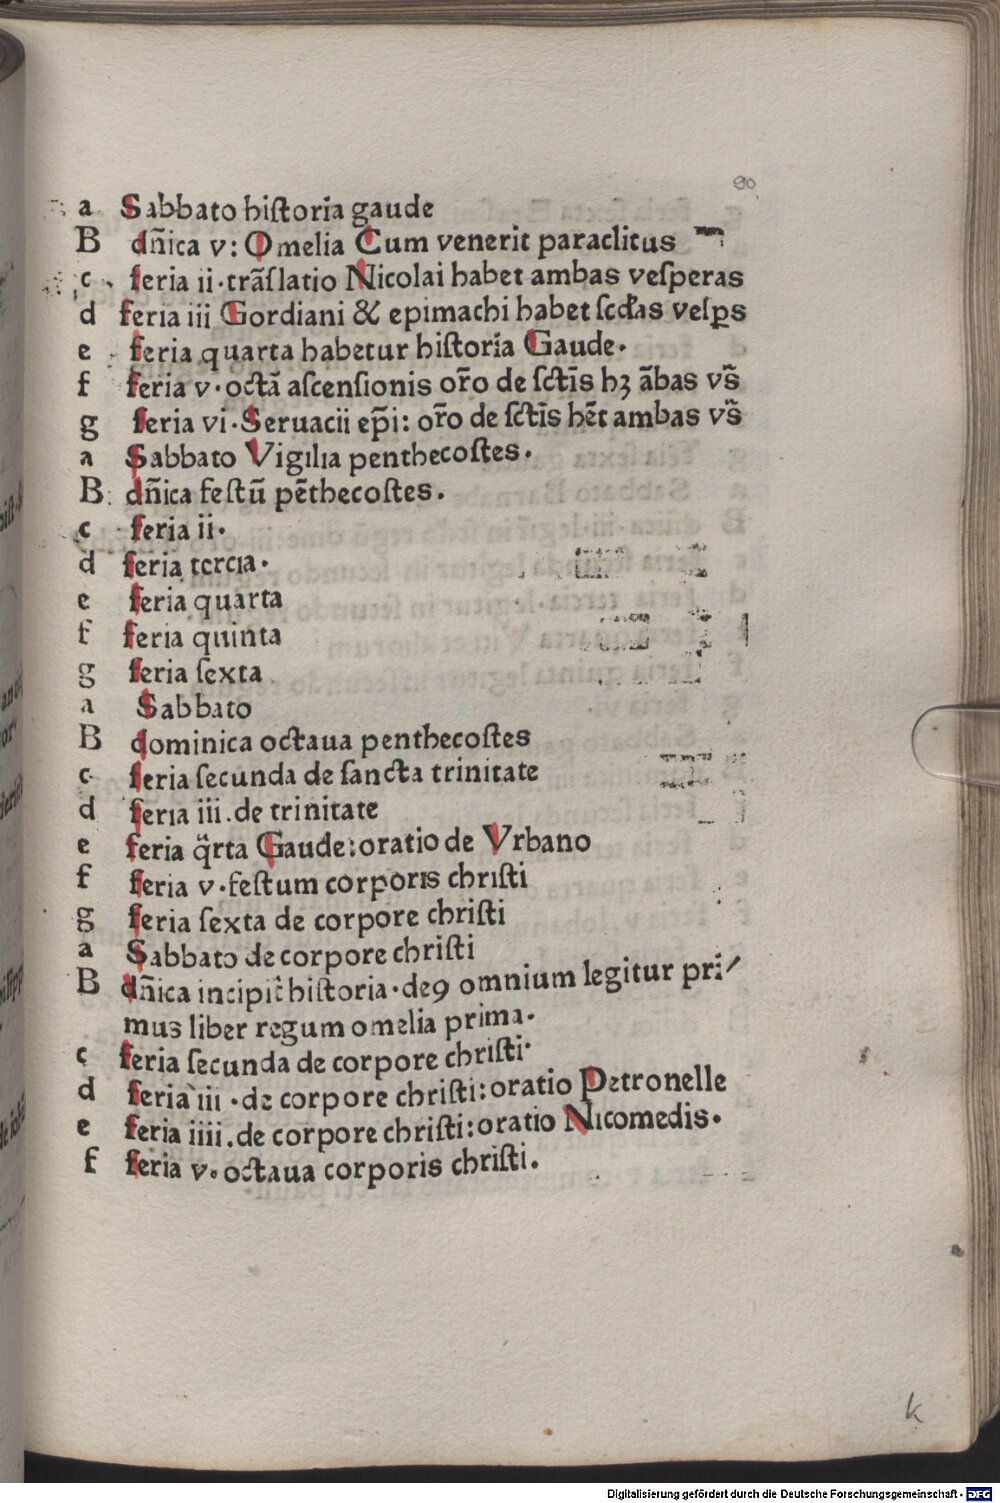 80
a Sabbato hiſtoria gaude
B dn̄ica v: Omelia Cum venerit paraclitus
c feria ii·trāſlatio Nicolai habet ambas veſperas
d feria iii Gordiani & epimachi habet ſcd̄as veſꝑs
e feria quarta habetur hiſtoria Gaude·
f feria v·octā aſcenſionis or̄o de ſctīs hꝫ ābas vs̄
g feria vi·Seruacii ep̄i: or̄o de ſctīs hēt ambas vs̄
a Sabbato Vigilia penthecoſtes.
B dn̄ica feſtū pēthecoſtes.
c feria ii·
d feria tercia·
e feria quarta
f feria quinta
g feria ſexta
a Sabbato
B dominica octaua penthecoſtes
c feria ſecunda de ſancta trinitate
d feria iii.de trinitate
e feria q̄rta Gaude:oratio de Vrbano
f feria v·feſtum corporis chriſti
g feria ſexta de corpore chriſti
a Sabbato de corpore chriſti
B dn̄ica incipit hiſtoria·deꝯ omnium legitur pri/
mus liber regum omelia prima·
c feria ſecunda de corpore chriſti·
d feria iii·de corpore chriſti:oratio Petronelle
e feria iiii.de corpore chriſti:oratio Nicomedis·
f feria v·octaua corporis chriſti.
k
Digitalisierung gefördert durch die Deutsche Forschungsgemeinschaft - DFG